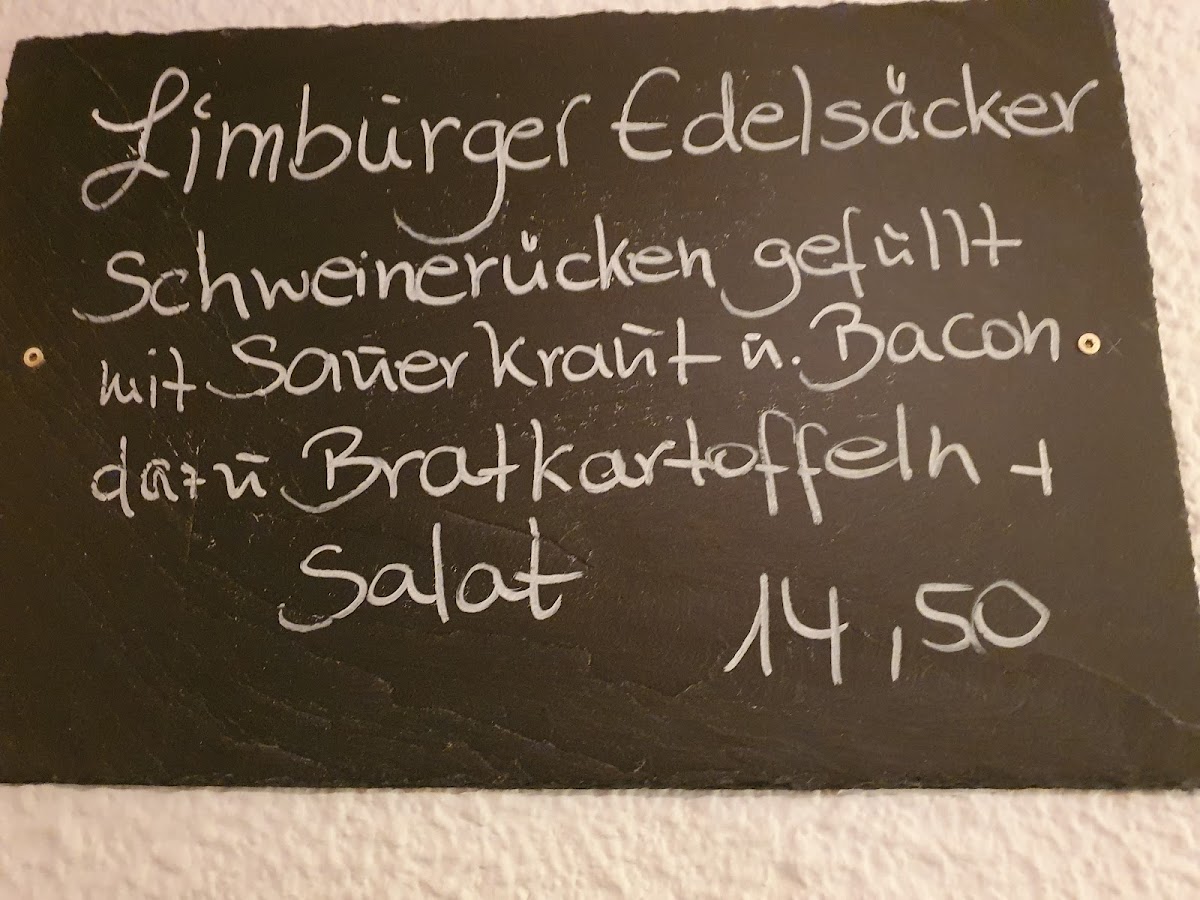 Limburger Edelsäcker
Schweinerücken gefüllt
mit Sauerkraut u. Bacon
dazu Bratkartoffeln +
Salat
14,50